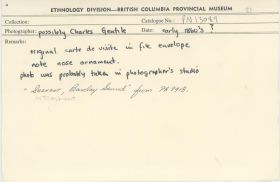 ETHNOLOGY DIVISION—BRITISH COLUMBIA PROVINCIAL MUSEUM
Collection: Catalogue No.: PN13089
Photographer: possibly Charles Gentile Date: early 1860's ?
Remarks:
original carte de visite in file envelope
note nose ornament.
photo was probably taken in photographer's studio
"Seeress, Barclay Sound" from PN 9918.